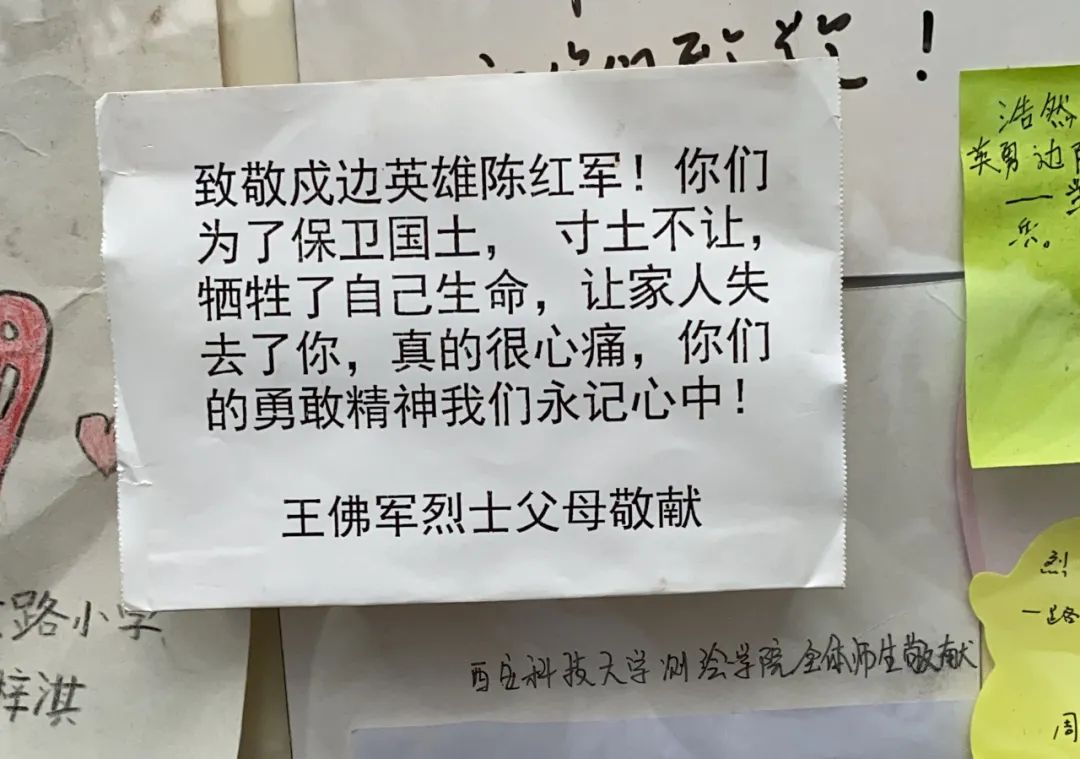 们致敬!
致敬戍边英雄陈红军！你们
为了保卫国土， 寸土不让，
牺牲了自己生命，让家人失
去了你，真的很心痛，你们
的勇敢精神我们永记心中！
王佛军烈士父母敬献
浩然
英勇边
一
乐。
路小学
梓淇
西安科技大学测绘学院全体师生敬献
烈
一路
周